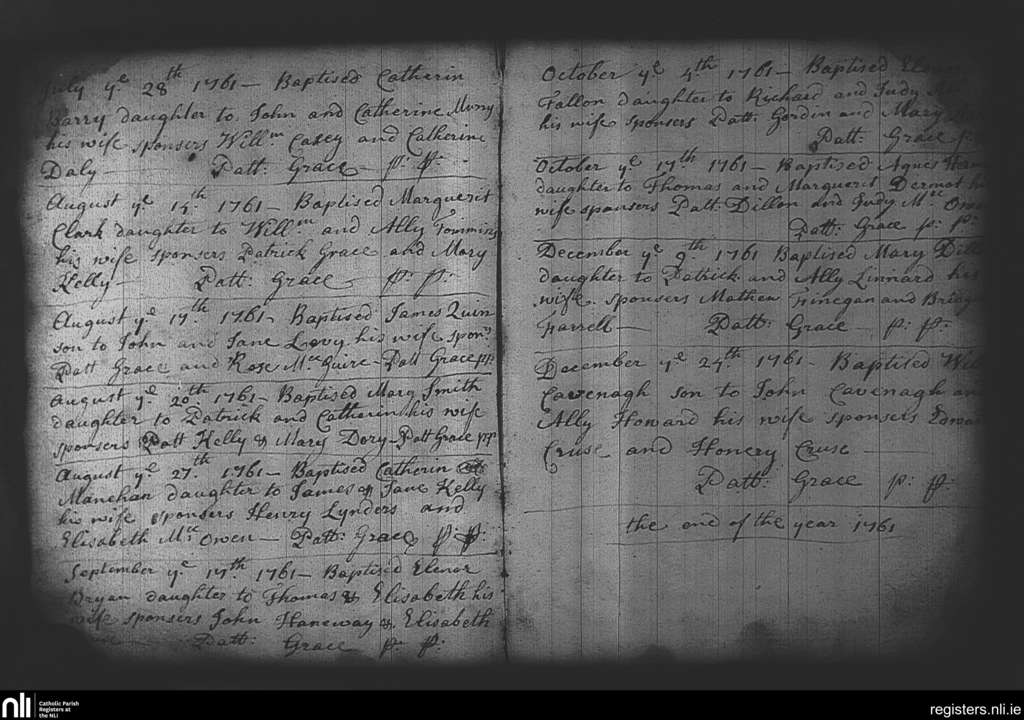 July ye 28th 1761 — Baptised Catherin
Barry daughter to John and Catherine Muny
his wife sponsers Willm Casey and Catherine
Daly — Patt: Grace — p: p:
August ye 14th 1761 — Baptised Marguerit
Clark daughter to Willm and Ally Tomming
his wife sponsers Patrick Grace and Mary
Kelly — Patt: Grace p: p:
August ye 17th 1761 — Baptised James Quin
son to John and Jane Levy his wife sponrs
Patt Grace and Rose Mc Guire — Patt Grace pp:
August ye 20th 1761 — Baptised Mary Smith
daughter to Patrick and Catherin his wife
sponsers Patt Kelly & Mary Dory — Patt Grace pp:
August ye 27th 1761 — Baptised Catherin
Manehan daughter to James & Jane Kelly
his wife sponsers Henry Lynders and
Elisabeth Mc Owen — Patt: Grace p: p:
September ye 17th 1761 — Baptised Elenor
Bryan daughter to Thomas & Elisabeth his
wife sponsers John Haneway & Elisabeth
Patt: Grace p: p:
October ye 4th 1761 — Baptised
Fallon daughter to Richard and Judy
his wife sponsers Patt: Gordin and Mary
Patt: Grace p:
October ye 17th 1761 — Baptised Agnes
daughter to Thomas and Marguerit Dermot
wife sponsers Patt: Dillon and Judy Mc
Patt: Grace p: p:
December ye 9th 1761 Baptised Mary
daughter to Patrick and Ally Linnard his
wife sponsers Mathew Finegan and
Farrell — Patt: Grace — p: p:
December ye 24th 1761 — Baptised
Cavenagh son to John Cavenagh
Ally Howard his wife sponsers
Cruse and Honery Cruse —
Patt: Grace p: p:
the end of the year 1761
nli Catholic Parish
Registers at
the NLI
registers.nli.ie